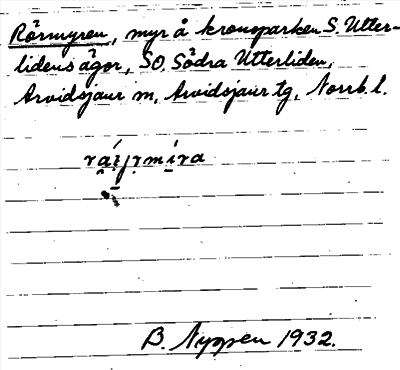 Rörmyren, myr å kronoparken S. Utter-
lidens ägor, SO. Södra Utterliden,
Arvidsjaur sn, Arvidsjaur tg, Norrb. l.
B. Nyppen 1932.